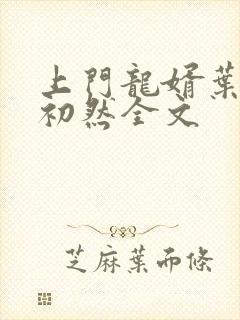 上門龍婿葉
初然全文
芝麻葉而條